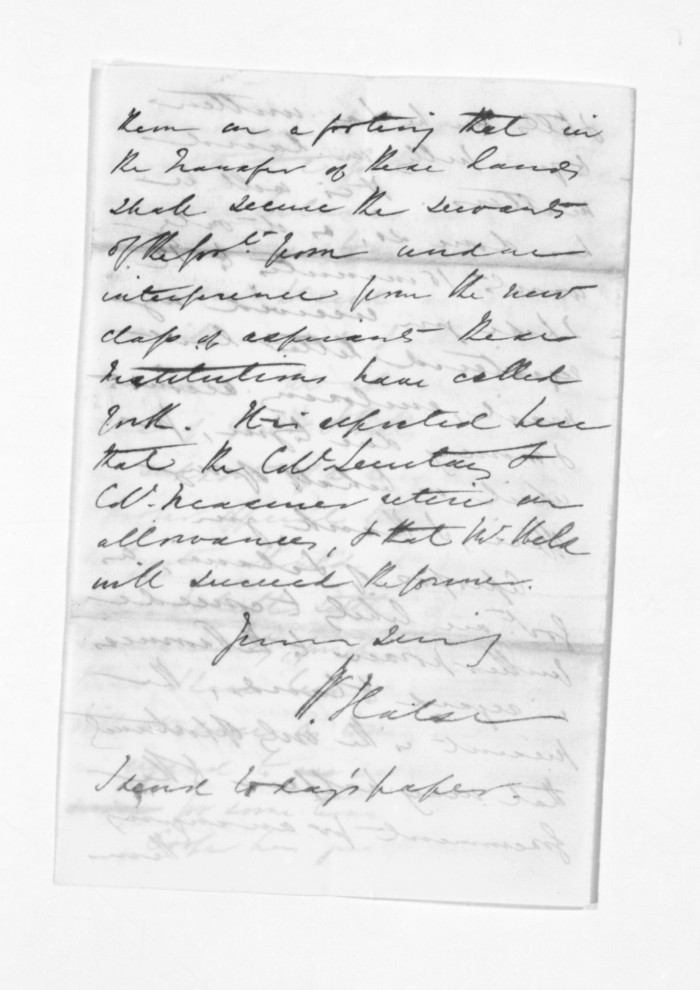 them on a footing that in
the transfer of these hands
shall secure the servants
of the Govt. from undue
interference from the new
class of aspirants these
Institutions have called
forth. It is reported here
that the Col. Secretary &
Col. Treasurer retire on
allowances, & that Mr. Weld
will succeed the former.
Yours very
H. Halse
I send today's paper.